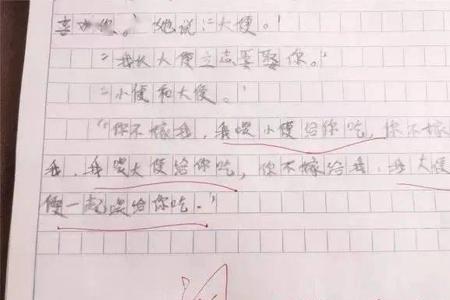 喜欢你。”她说:“大便。”
“我从大便立志要娶你。”
“小便和大便。”
“你不嫁我,我喂小便给你吃,你不嫁
我,我喂大便给你吃,你不嫁给我,我大便
便一起喂给你吃。”